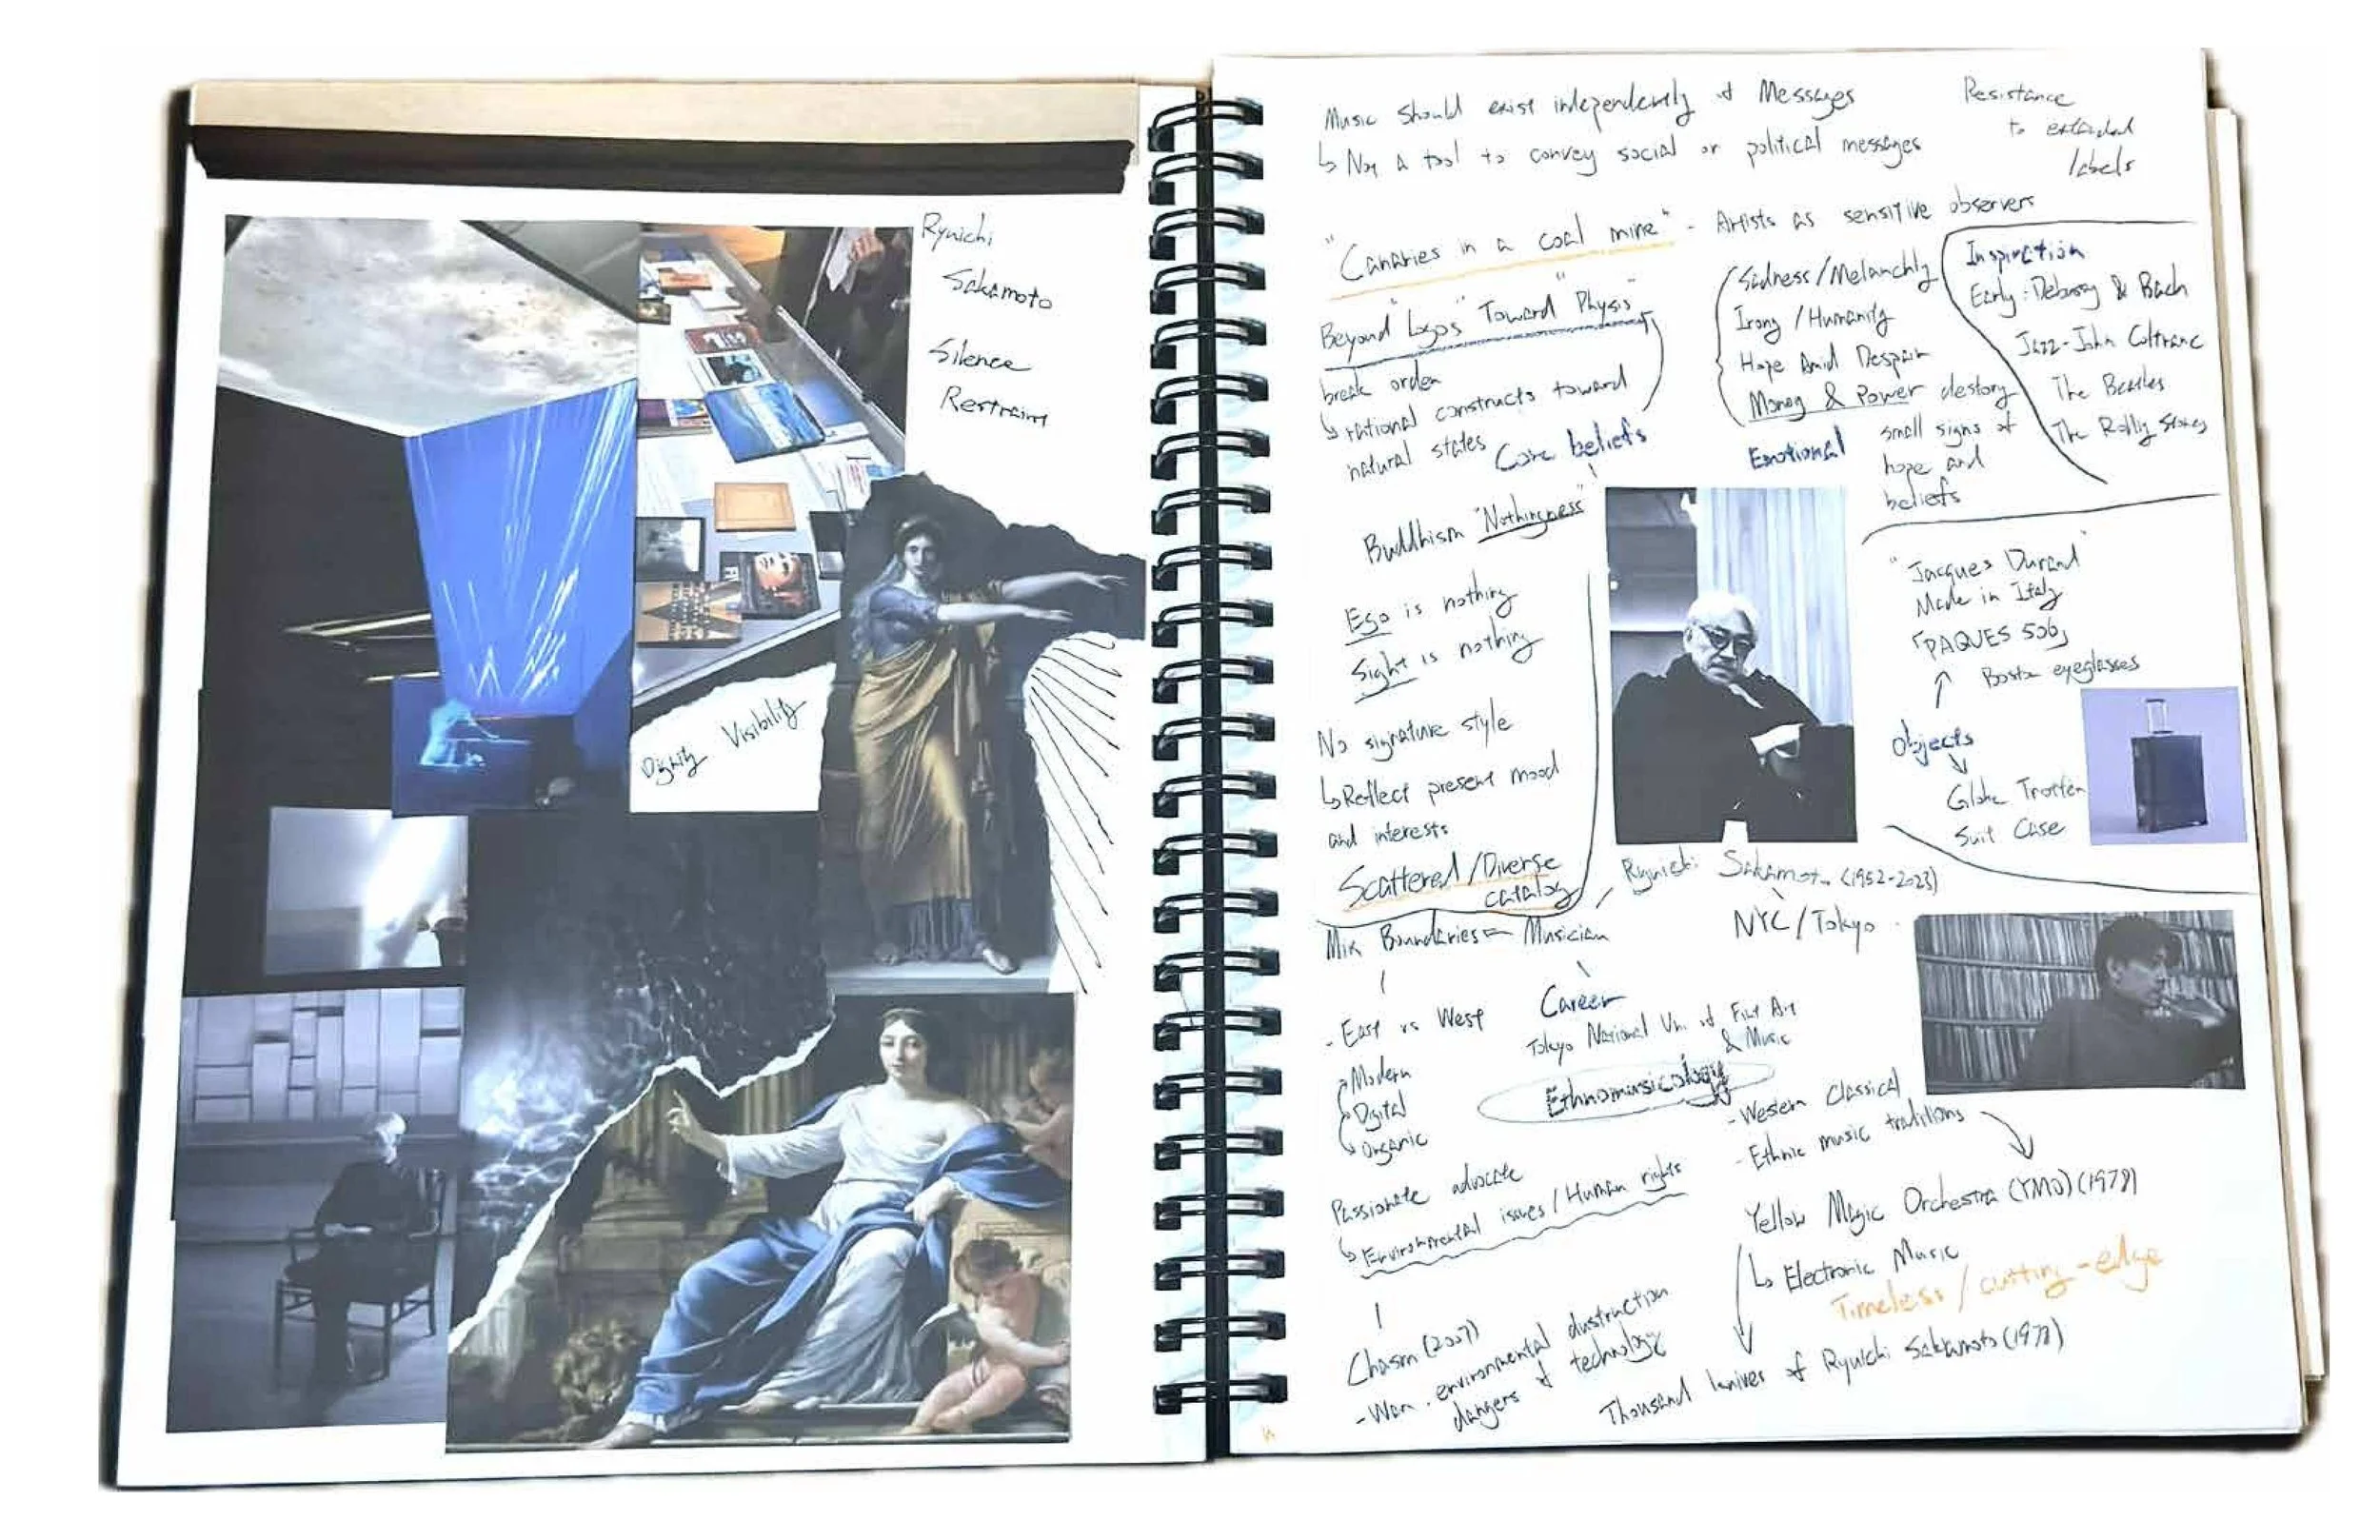 Ryuichi
Sakamoto
Silence
Restraint
Dignity Visibility
Music should exist independently of Messages
↳ Not a tool to convey social or political messages
Resistance
to external
labels
"Canaries in a coal mine" - Artists as sensitive observers
Beyond "Logos" Toward "Physis"
break order
↳ rational constructs toward
natural states
Core beliefs
Sadness/Melanchly
Irony/Humanity
Hope Amid Despair
Money & Power destory
small signs of
hope and
beliefs
Emotional
Inspiration
Early: Debussy & Bach
Jazz-John Coltrane
The Beatles
The Rolling Stones
Buddhism "Nothingness"
Ego is nothing
Sight is nothing
No signature style
↳ Reflect present mood
and interests
Scattered/Diverse
catalog
"Jacques Durand"
Made in Italy
「PAQUES 506」
Boston eyeglasses
Objects
Globe Trotter
Suit Case
Ryuichi Sakamoto (1952-2023)
NYC/Tokyo
Mix Boundaries
Musician
- East vs West
Modern
Digital
Organic
Career
Tokyo National Uni of Fine Art
& Music
Ethnomusicology
- Western Classical
- Ethnic music traditions
Passionate advocate
↳ Environmental issues/Human rights
Yellow Magic Orchestra (YMO) (1978)
↳ Electronic Music
Timeless/cutting-edge
Thousand knives of Ryuichi Sakamoto (1978)
Chasm (2007)
- War, environmental dustruction
dangers of technology